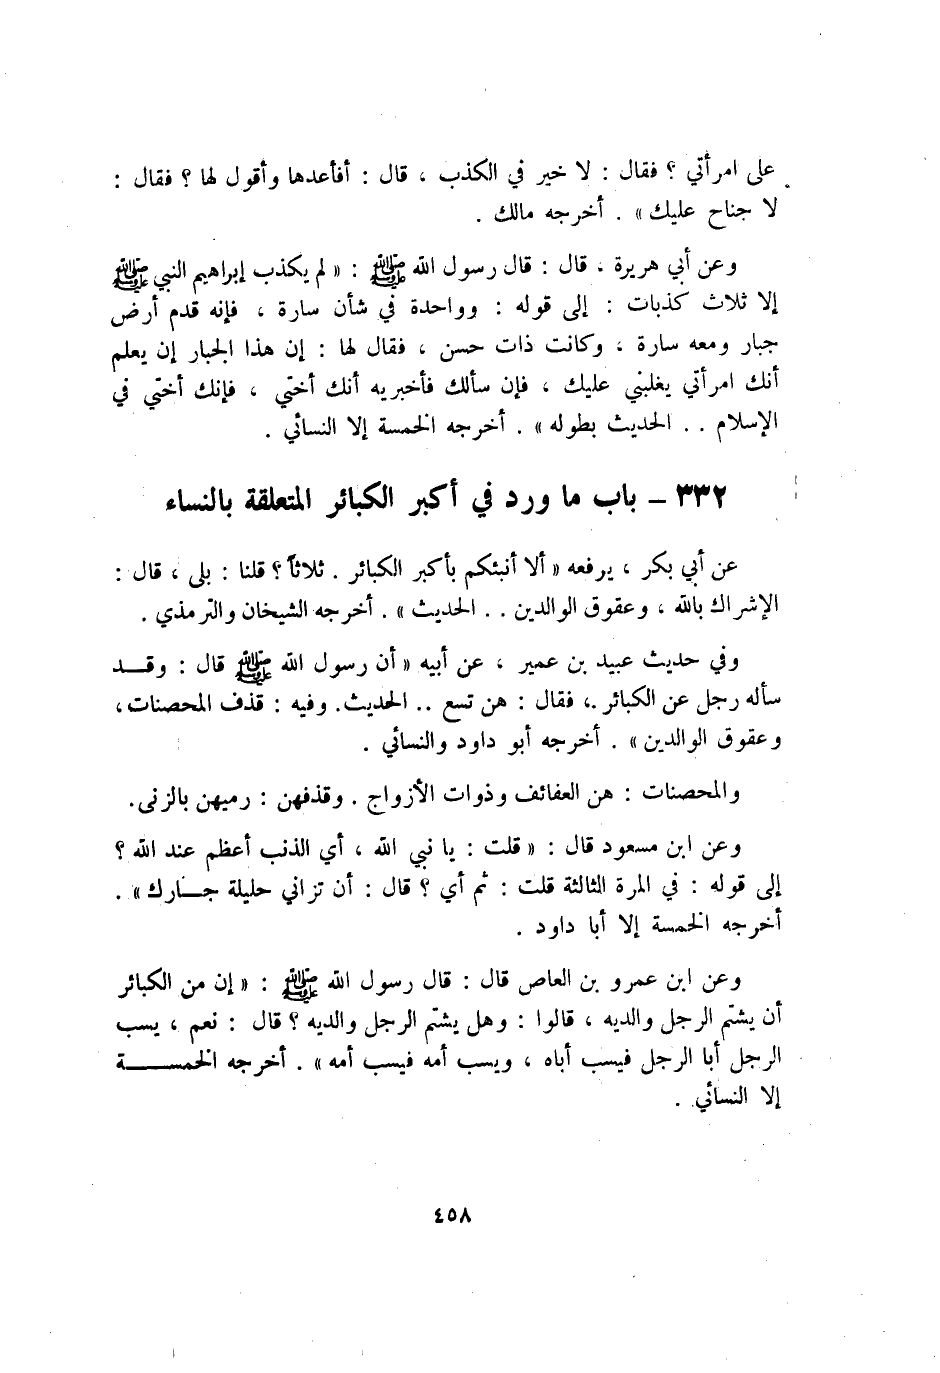 على امرأتي ؟ فقال : لا خير في الكذب ، قال : أفأعدها وأقول لها ؟ فقال :
لا جناح عليك » . أخرجه مالك .
وعن أبي هريرة ، قال : قال رسول الله ﷺ : « لم يكذب إبراهيم النبي ﷺ
إلا ثلاث كذبات : إلى قوله : وواحدة في شأن سارة ، فإنه قدم أرض
جبار ومعه سارة ، وكانت ذات حسن ، فقال لها : إن هذا الجبار إن يعلم
أنك امرأتي يغلبني عليك ، فإن سألك فأخبريه أنك أختي ، فإنك أختي في
الإسلام . . الحديث بطوله » . أخرجه الخمسة إلا النسائي .
٣٣٢ – باب ما ورد في أكبر الكبائر المتعلقة بالنساء
عن أبي بكر ، يرفعه « ألا أنبئكم بأكبر الكبائر . ثلاثاً ؟ قلنا : بلى ، قال :
الإشراك بالله ، وعقوق الوالدين . . الحديث » . أخرجه الشيخان والترمذي .
وفي حديث عبيد بن عمير ، عن أبيه « أن رسول الله ﷺ قال : وقد
سأله رجل عن الكبائر .، فقال : هن تسع . . الحديث . وفيه : قذف المحصنات ،
وعقوق الوالدين » . أخرجه أبو داود والنسائي .
والمحصنات : هن العفائف وذوات الأزواج . وقذفهن : رميهن بالزنى .
وعن ابن مسعود قال : « قلت : يا نبي الله ، أي الذنب أعظم عند الله ؟
إلى قوله : في المرة الثالثة قلت : ثم أي ؟ قال : أن تزاني حليلة جارك » .
أخرجه الخمسة إلا أبا داود .
وعن ابن عمرو بن العاص قال : قال رسول الله ﷺ : « إن من الكبائر
أن يشتم الرجل والديه ، قالوا : وهل يشتم الرجل والديه ؟ قال : نعم ، يسب
الرجل أبا الرجل فيسب أباه ، ويسب أمه فيسب أمه » . أخرجه الخمسة
إلا النسائي .
٤٥٨